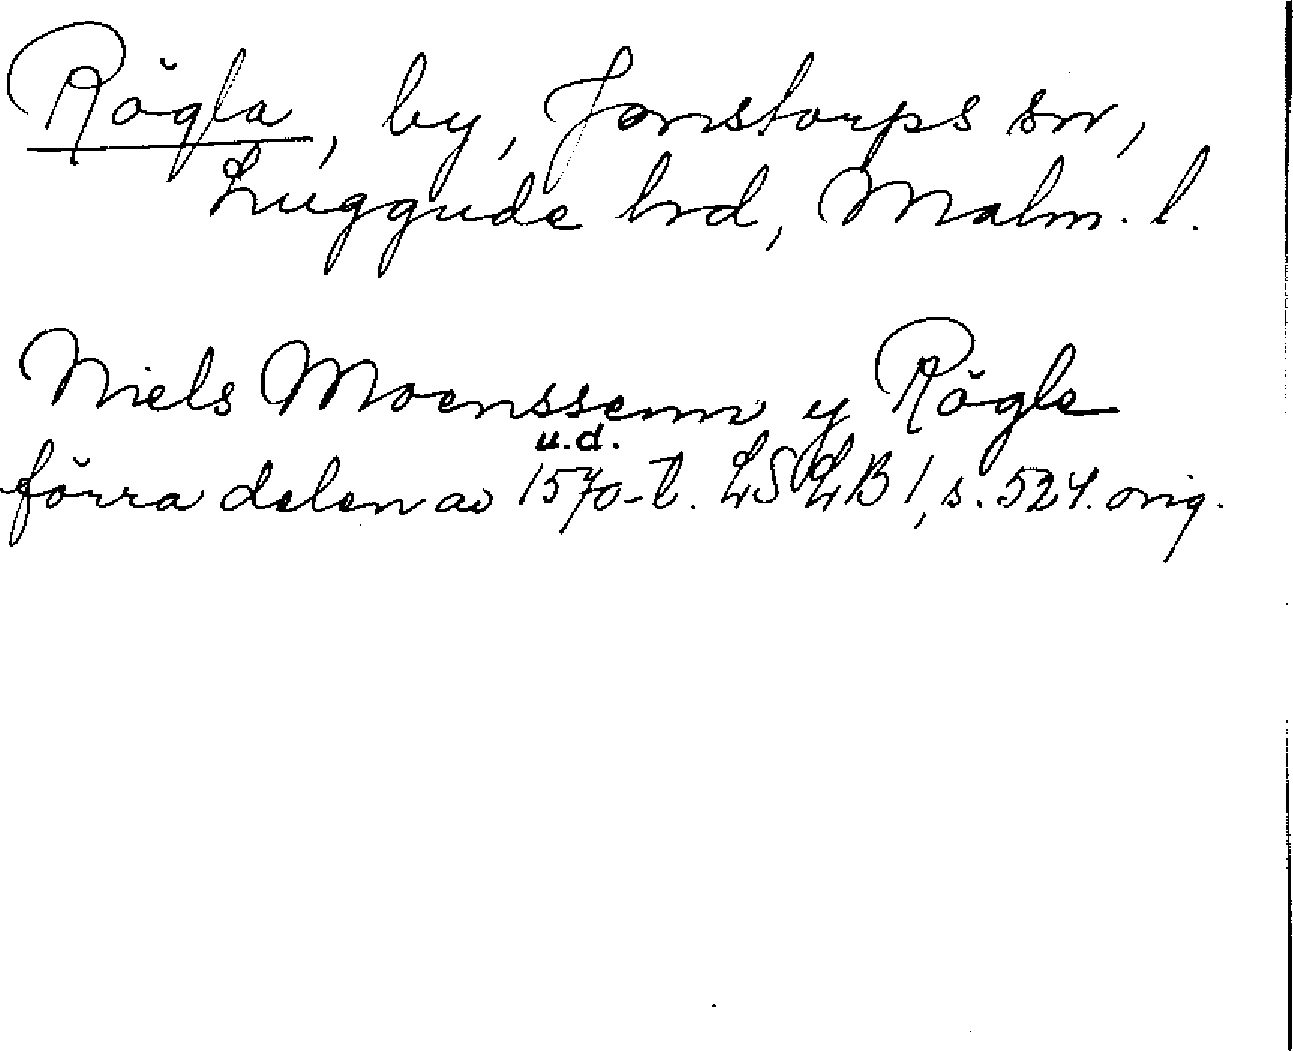 Rögla, by, Jonstorps sn,
Luggude hrd, Malm. l.
Niels Moenssenn y Rögle
u.d.
förra delen av 1570-t. LSLB 1, s. 524. orig.